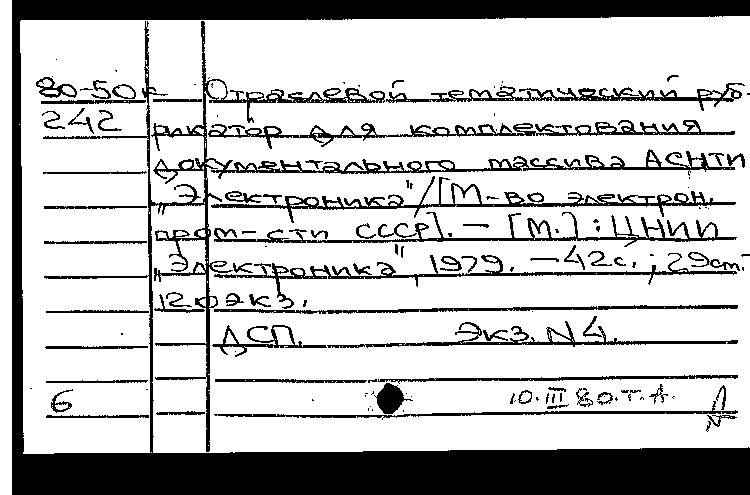 80-50к Отраслевой тематический руб-
242 рикатор для комплектования
документального массива АСНТИ
"Электроника"/[М-во электрон.
пром-сти СССР]. — [М.] : ЦНИИ
"Электроника", 1979. — 42с.; 29см.
120экз.
ДСП. Экз. N4.
6 10.III 80. Т.А.